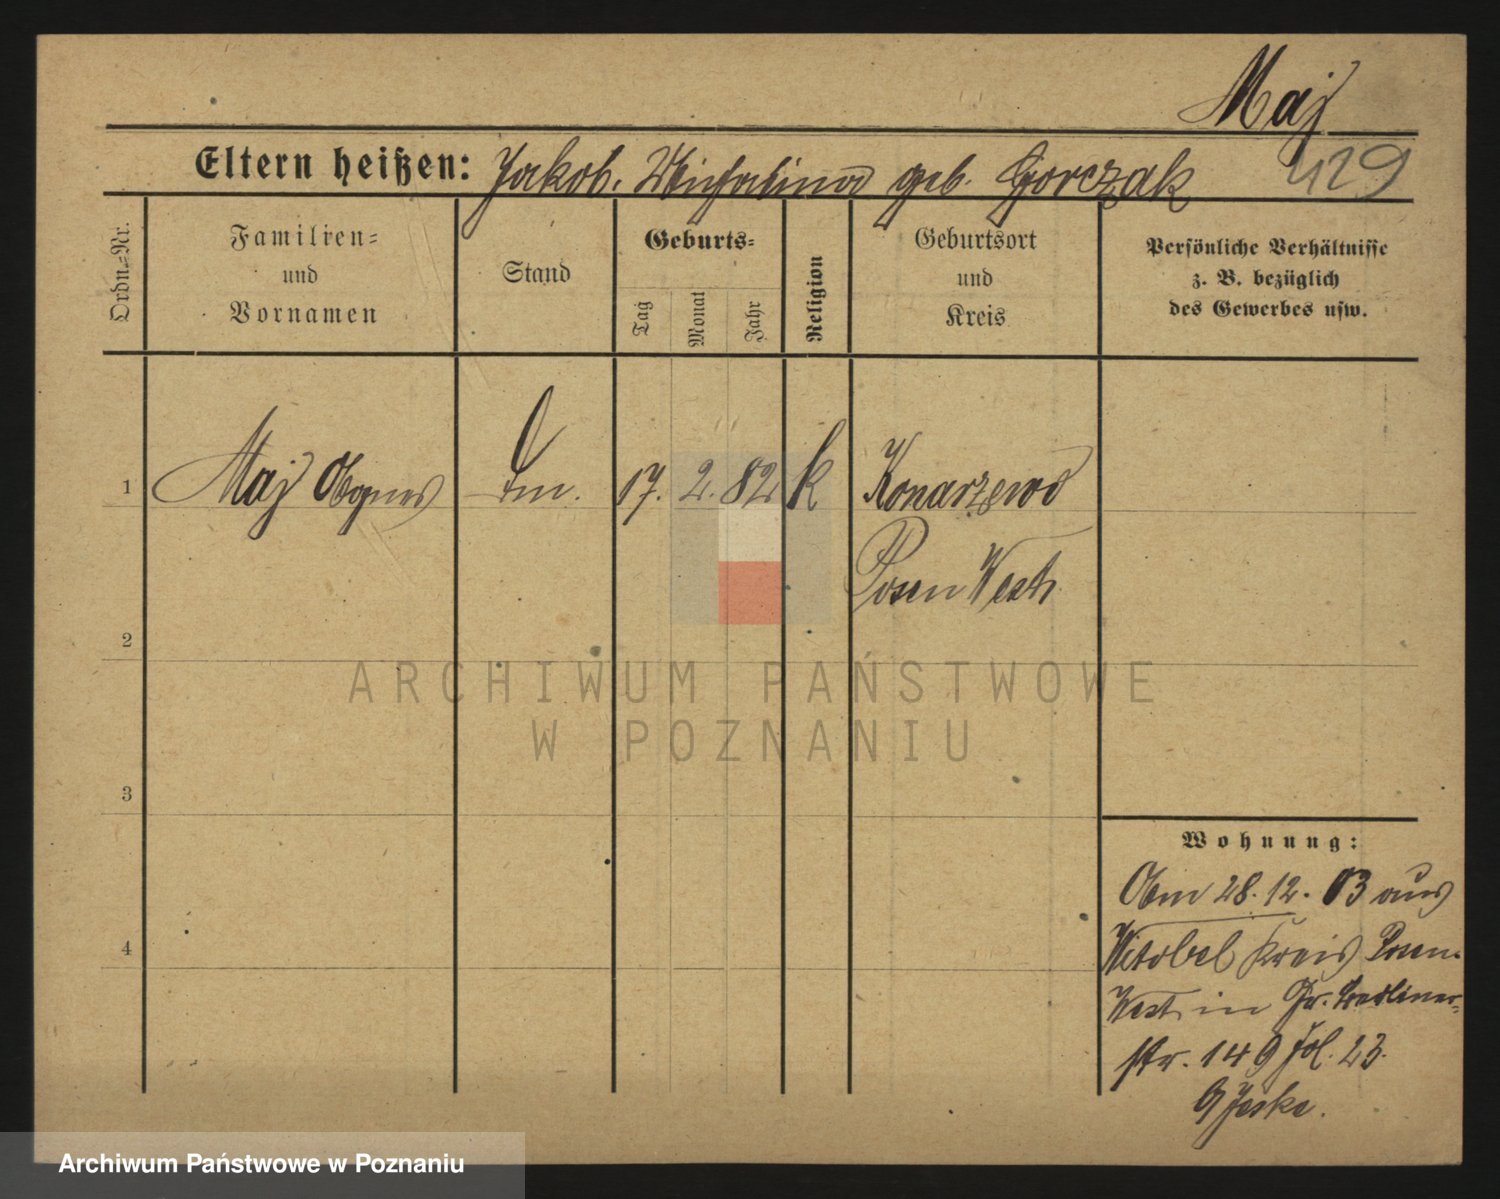 Maj
Eltern heißen: Jakob. Michalina geb. Gorczak 429
Ordn.-Nr.
Familien-
und
Vornamen
Stand
Geburts-
Tag
Monat
Jahr
Religion
Geburtsort
und
Kreis
Persönliche Verhältnisse
z. B. bezüglich
des Gewerbes usw.
1 Maj Agnes 17. 2. 82 k Konarzewo
Posen West
2
3
4
ARCHIWUM PAŃSTWOWE
W POZNANIU
Wohnung:
Am 28. 12. 03 aus
Witobel Kreis Posen-
West in Gr. Berliner-
str. 149 Fol. 23.
Jeske.
Archiwum Państwowe w Poznaniu